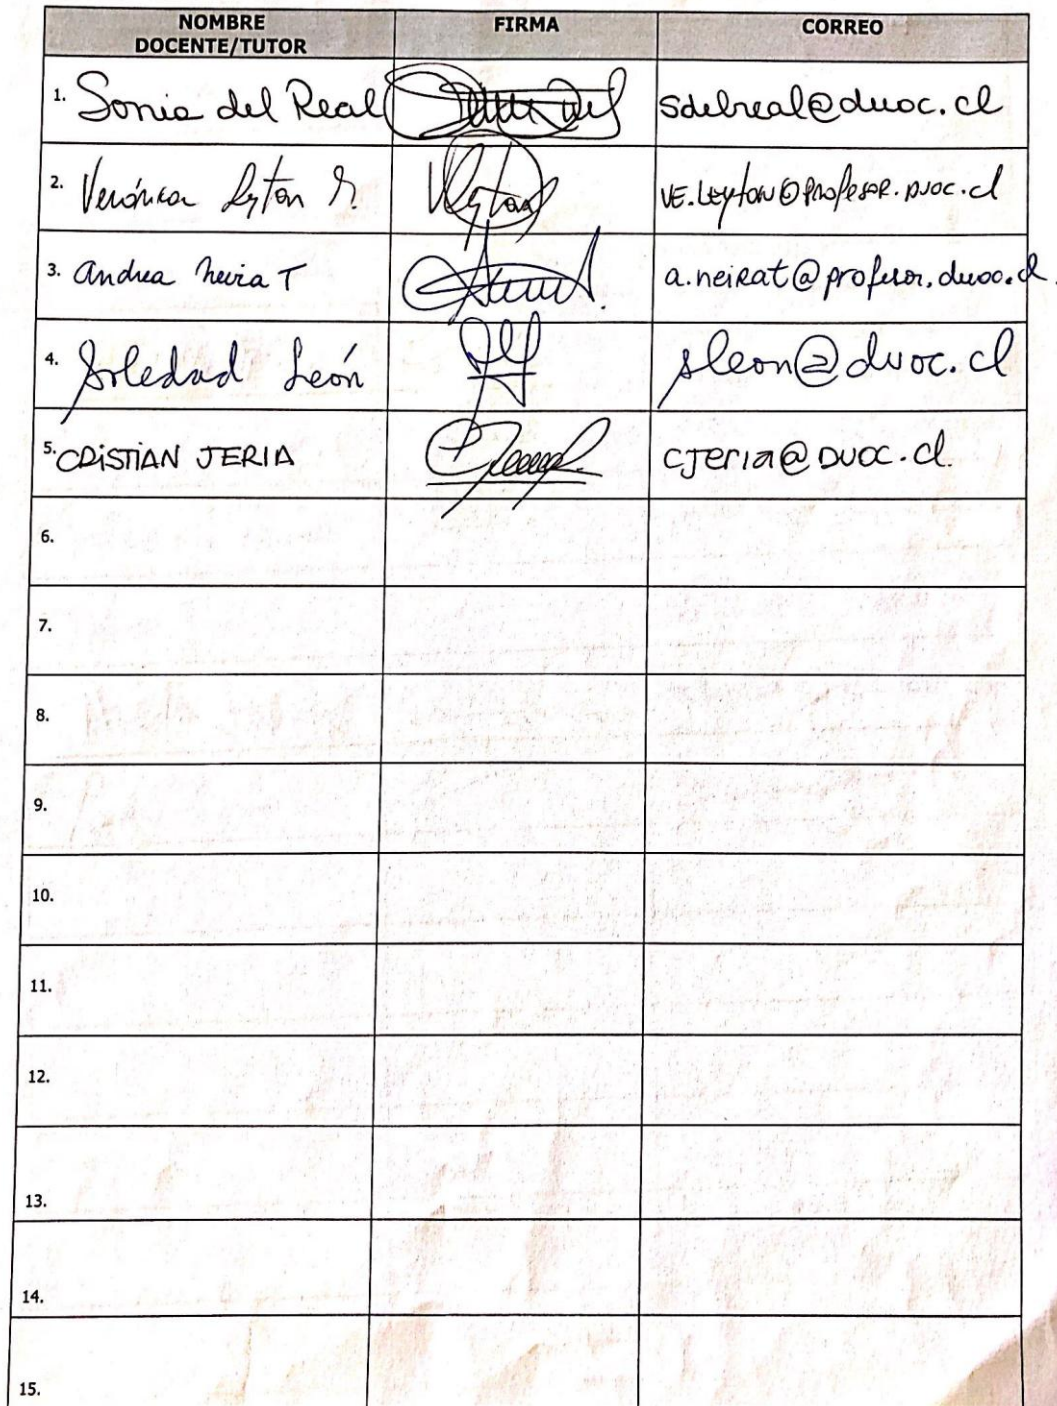 NOMBRE DOCENTE/TUTOR FIRMA CORREO
1. Sonia del Real sdelreal@duoc.cl
2. Verónica Leyton VE.Leyton@profesor.duoc.cl
3. Andrea Neira T a.neirat@profesor.duoc.cl.
4. Soledad León sleon@duoc.cl
5. CRISTIAN JERIA cjeria@DUOC.cl.
6.
7.
8.
9.
10.
11.
12.
13.
14.
15.